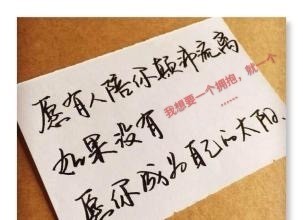 愿有人陪你颠沛流离
如果没有
我想要一个拥抱，就一个
……
愿你成为自己的太阳、